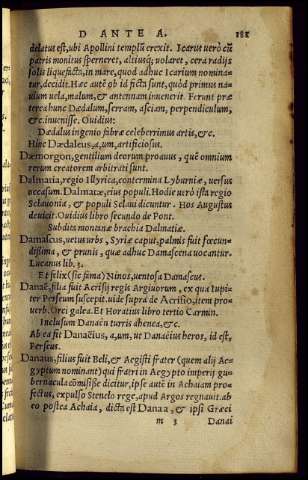 D ANTE A. 181
delatus est, ubi Apollini templū erexit. Icarus uerò cùm
patris monitus sperneret, altiusq; uolaret, cera radijs
solis liquefacta, in mare, quod adhuc Icarium nomina-
tur, decidit. Hæc autē ob id ficta sunt, quòd primus na-
uium uela, malum, & antennam inuenerit. Ferunt præ
terea hunc Dædalum, serram, asciam, perpendiculum,
&c. inuenisse. Ouidius:
Dædalus ingenio fabræ celeberrimus artis, &c.
Hinc Dædaleus, a, um, artificiosus.
Dæmorgon, gentilium deorum proauus, quē omnium
rerum creatorem arbitrati sunt.
Dalmatia, regio Illyrica, contermina Lyburniæ, uersus
occasum. Dalmatæ, eius populi. Hodie uerò ista regio
Schauonia, & populi Sclaui dicuntur. Hos Augustus
deuicit. Ouidius libro secundo de Pont.
Subdita montanæ brachia Dalmatiæ.
Damascus, uetus urbs, Syriæ caput, palmis fuit fœcun-
dissima, & prunis, quæ adhuc Damascena uocantur.
Lucanus lib. 3.
Et felix (sic fama) Ninos, uentosa Damascus.
Danaë, filia fuit Acrisij regis Argiuorum, ex qua Iupi-
ter Perseum suscepit. uide supra de Acrisio, item pro-
uerb. Orci galea. Et Horatius libro tertio Carmin.
Inclusam Danaën turris ahenea, &c.
Ab ea fit Danaëius, a, um, ut Danaëius heros, id est,
Perseus.
Danaus, filius fuit Beli, & Aegisti frater (quem alij Ae-
gyptum nominant) qui fratri in Aegypto imperij gu-
bernacula cōmisisse dicitur, ipse autē in Achaiam pro-
fectus, expulso Stenelo rege, apud Argos regnauit. ab
eo postea Achaia, dicta est Danaa, & ipsi Græci
m 3 Danai